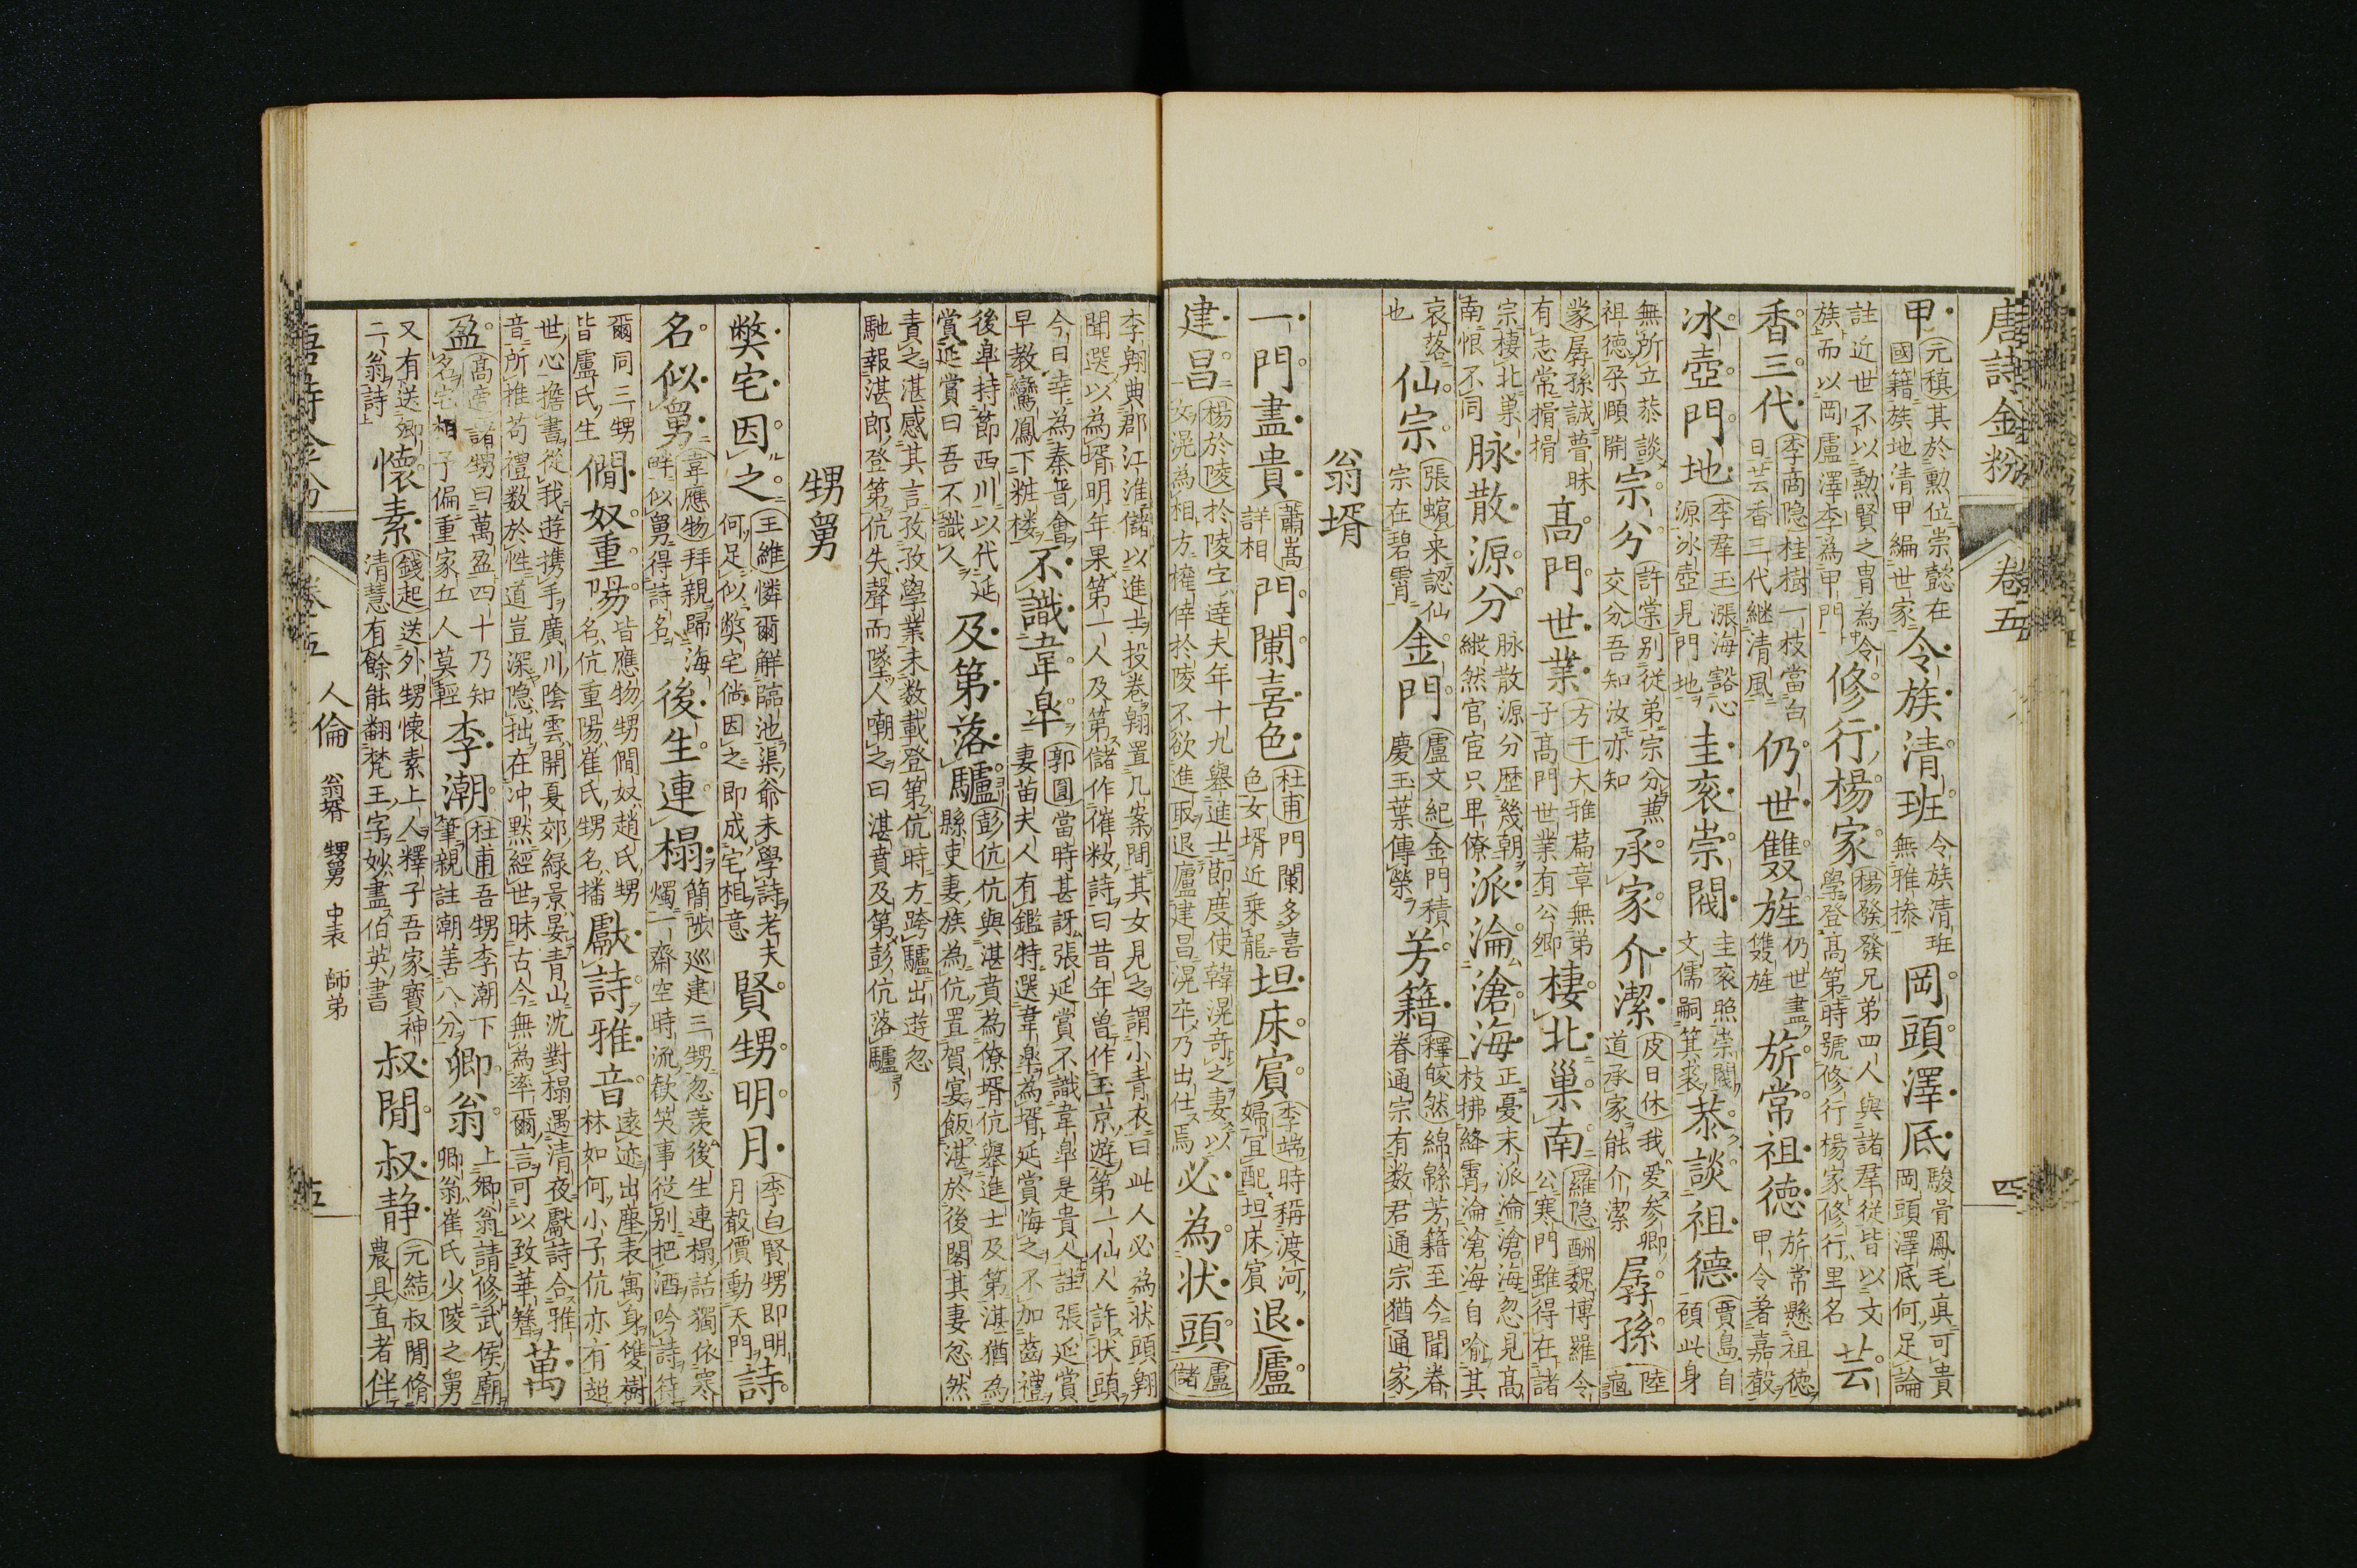 唐詩金粉 卷五 四
甲 元稹其於勲位崇懿在國籍族地清甲編世家 令族清班 令族清班無雅摻 岡頭澤底 駿骨鳳毛真可貴岡頭澤底何足論
註近世不以勲賢之胄為令族而以岡盧澤李為甲門 修行楊家 楊發發兄弟四人與諸羣從皆以文學登高第時號修行楊家修行里名 芸
香三代 李商隐桂樹一枝當白日芸香三代継清風 仍世雙旌 仍世盡雙旌 旂常祖徳 旂常懸祖徳甲令著嘉聲
冰壺門地 李羣玉漲海豁心源冰壺見門地 圭衮崇閥 圭衮照崇閥文儒嗣箕裘 恭談祖徳 賈島自頋此身
無所立恭談祖徳朶頤開 宗分 許棠别従弟宗分蕙交分吾知汝亦知 承家介潔 皮日休我爱参卿道承家能介潔 孱孫 陸龜
蒙孱孫誠瞢昧有志常搰搰 高門世業 方干大雅篇章無弟子高門世業有公卿 棲北巢南 羅隐酬魏博羅令公寒門雖得在諸
宗棲北巢南恨不同 脉散源分 脉散源分歴幾朝縦然官宦只卑僚 派淪滄海 正憂末派淪滄海忽見高枝拂絳霄淪滄海自喻其
哀落也 仙宗 張蠙来認仙宗在碧霄 金門 盧文紀金門積慶玉葉傳榮 芳籍 釋皎然綿緜芳籍至今聞眷眷通宗有数君通宗猶通家
翁壻
一門盡貴 蕭嵩詳相 門闌喜色 杜甫門闌多喜色女壻近乗龍 坦床賓 李端時稱渡河婦宜配坦床賓 退廬
建昌 楊於陵於陵字達夫年十九舉進士節度使韓滉竒之妻以女滉為相方權倖於陵不欲進取退廬建昌滉卒乃出仕焉 必為状頭 盧儲
李翺典郡江淮儲以進士投卷翺置几案間其女見之謂小青衣曰此人必為状頭翺
聞選以為壻明年果第一人及第儲作催籹詩曰昔年曽作玉京遊第一仙人許状頭
今日幸為秦晉會早教鸞鳳下粧楼 不識韋皐 郭圓當時甚訝張延賞不識韋皐是貴人註張延賞妻苗夫人有鑑特選韋皐為壻延賞悔之不加齒禮
後皐持節西川以代延賞延賞曰吾不識人 及第落驢 彭伉伉與湛賁為僚壻伉舉進士及第湛猶為縣吏妻族為伉置賀宴飯湛於後閣其妻忿然
責之湛感其言孜孜學業未数載登第伉時方跨驢出遊忽
馳報湛郎登第伉失聲而墜人嘲之曰湛賁及第彭伉落驢
甥舅
獘宅因之 王維憐爾解臨池渠爺未學詩老夫何足似獘宅倘因之即成宅相意 賢甥明月 李白賢甥即明月聲價動天門 詩
名似舅 韋應物拜親歸海畔似舅得詩名 後生連榻 簡陟巡建三甥忽羨後生連榻話獨依寒燭一齋空時流歓笑事従别把酒吟詩待
爾同三甥皆盧氏生 僩奴重陽 皆應物甥僩奴趙氏甥名伉重陽崔氏甥名播 獻詩雅音 逺迹出塵表寓身雙樹林如何小子伉亦有超
世心擔書従我遊携手廣川陰雲開夏郊緑景晏青山沈對榻遇清夜獻詩合雅
音所推苟禮数於性道豈深隐拙在冲黙經世昧古今無為率爾言可以致華簪 萬
盈 高適諸甥曰萬盈四十乃知名宅相予偏重家丘人莫輕 李潮 杜甫吾甥李潮下筆親註潮善八分 卿翁 上卿翁請修武侯廟卿翁崔氏少陵之舅
又有送卿二翁詩 懐素 錢起送外甥懐素上人釋子吾家寳神清慧有餘能翻梵王字妙盡伯英書 叔閒叔静 元結叔閒脩農具直者伴
唐詩金粉 卷五 人倫 翁壻 甥舅 中表 師弟 五